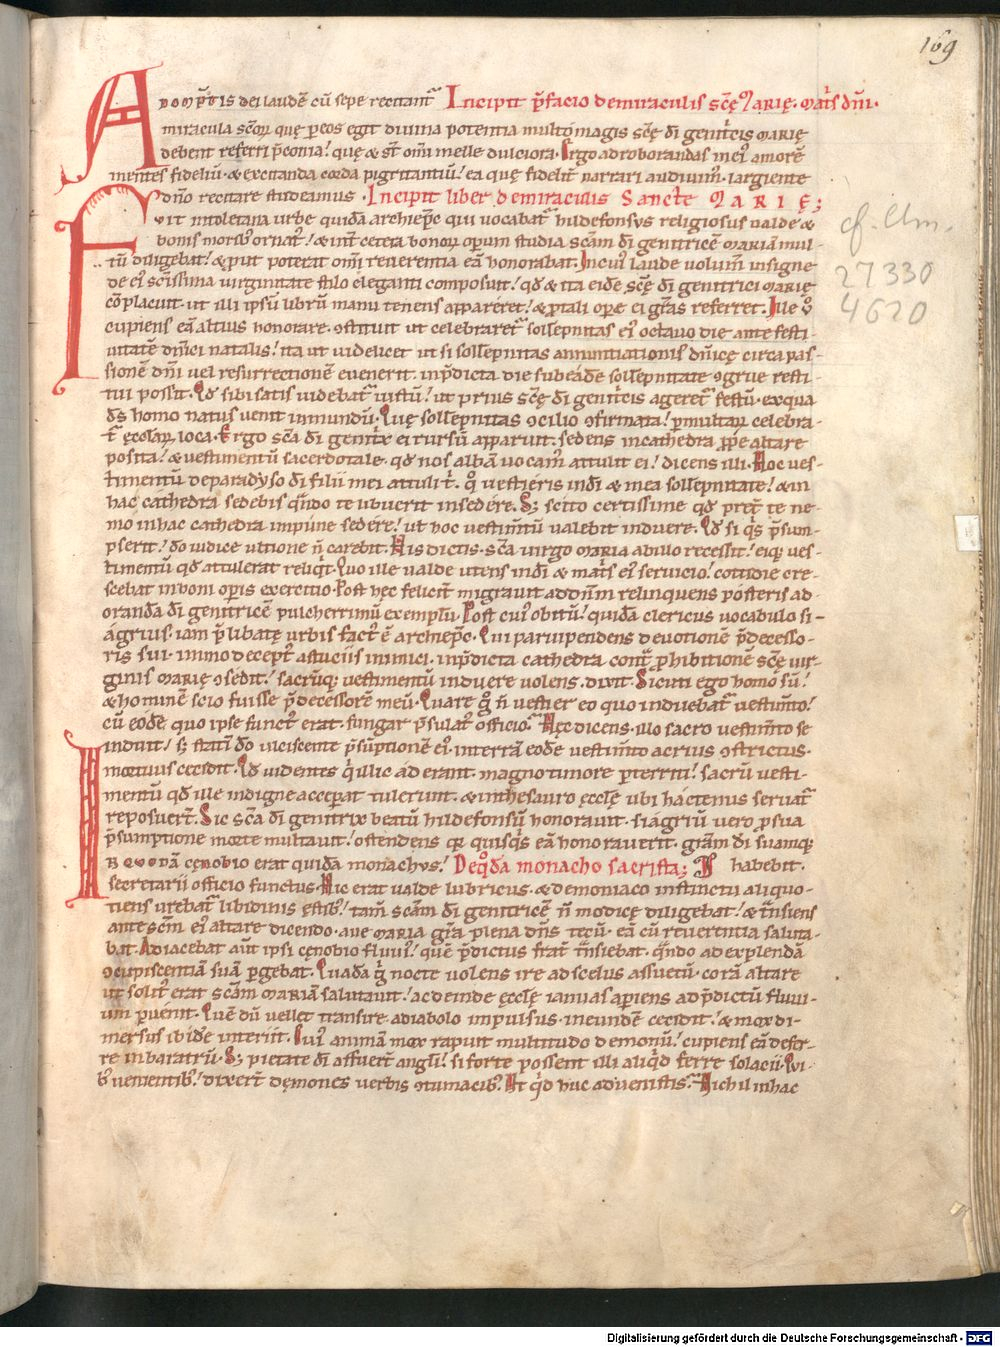 169
AD OMP̄TIS dei laudē cū sepe recitant᷑ Incipit p̄facio de miraculis sc̄ę MARIĘ. mat͛s dn̄i.
miracula sc̄oꝝ quę ꝑ eos egit divina potentia multomagis sc̄ę di genit͛cis marię
debent referri p̄conia! quę & st̄ om̄i melle dulciora. Ergo ad roborandas in ei᷒ amorē
mentes fideliū. & excitanda corda pigritantiū! ea quę fidelit͛ narrari audivim᷒. largiente
dn̄o recitare studeamus. Incipit liber de miraculis Sancte MARIĘ;
FVit intoletana urbe quidā archiep̄c qui vocabat᷑ hildefonsus religiosus valde &
bonis moribꝰ ornat᷒! & int͛ cetera bonoꝝ opum studia sc̄am di genitricē mariā mul-
tū diligebat! & put poterat om̄i reverentia eā honorabat. In cui᷒ laude volum̄ insigne
de ei᷒ sc̄issima virginitate stilo eleganti composuit! qd̄ & ita eidē sc̄ę di genitrici marię
cōplacuit. ut illi ipsū librū manu tenens appareret! & ꝓ tali oꝑe ei gr̄as referret. Ille ṽ
cupiens eā altius honorare. ꝯstituit ut celebraret᷑ sollēpnitas ei᷒ octavo die ante festi-
vitatē dn̄ici natalis! ita ut videlicet ut si sollēpnitas annuntiationis dn̄icę circa pas-
sionē dn̄i vel resurrectionē evenerit. in p̄dicta die sub eādē sollēpnitate ꝯgrue resti-
tui possit. Qd̄ sibi satis videbat᷑ iustū! ut prius sc̄ę di genit͛cis ageret᷑ festū. ex qua
ds̄ homo natus venit in mundū. Quę sollēpnitas ꝯcilio ꝯfirmata! ꝑ multaꝝ celebra-
t᷑ ęccl̄aꝝ loca. Ergo sc̄a di genit͛x ei rursū apparuit. sedens in cathedra ꝓpe altare
posita! & vestimentū sacerdotale. qd̄ nos albā vocam᷒ attulit ei! dicens illi. Hoc ves-
timentū de paradyso di filii mei attuli t͛. qͦ vestieris in di & mea sollēpnitate! & in
hac cathedra sedebis qn̄do te ubuerit insedere. Sꝫ scito certissime qd̄ pret᷑ te ne-
mo in hac cathedra impune sedere! ut hoc vestim̄tū valebit induere. Qd̄ si q͛s p̄sum-
pserit! do iudice ultione n̄ carebit. His dictis. sc̄a virgo maria ab illo recessit! eiqꝫ ves-
timentū qd̄ attulerat reliq͛t. Quo ille valde utens in di & mat͛s ei᷒ servicio! cottidie cre-
scebat in boni oꝑis exercitio. Post hęc felicit͛ migravit ad dn̄m relinquens posteris ad-
orandā di genitricē pulcherrimū exemplū. Post cui᷒ obitū! quidā clericus vocabulo si-
agrius. iam p̄libatę urbis fact᷒ ē archiep̄c. Qui parvipendens devotionē p̄decesso-
ris sui. immo decept᷒ astuciis inimici. in p̄dicta cathedra cont͛ ꝓhibitionē sc̄ę vir-
ginis marię ꝯsedit! sacrūqꝫ vestimentū induere volens. dixit. Sicuti ego homo sū!
& hominē scio fuisse p̄decessorē meū. Quare g͛ n̄ vestier eo quo induebat᷑ vestim̄to!
cū eodē quo ipse funct᷒ erat. fungar p̄sulat᷒ officio. Hęc dicens. illo sacro vestim̄to se
induit! sꝫ statī do ulciscente p̄sūptionē ei᷒. in terrā eodē vestim̄to acrius ꝯstrictus.
mortuus cecidit. Qd̄ videntes q͛ illic aderant. magno timore ꝑterriti! sacrū vesti-
mentū qd̄ ille indigne acceꝑat tulerunt. & in thesauro ęccl̄ę ubi hactenus servat᷑
reposuert̄. Sic sc̄a di genitrix beatū hildefonsū honoravit. siagriū vero ꝓ sua
p̄sumptione morte multavit! ostendens qꝛ quisq͛s eā honoraverit. gr̄am di suamqꝫ
IN QUODĀ cęnobio erat quidā monachꝰ! De qͦdā monacho sacrista; habebit.
secretarii officio functus. Hic erat valde lubricus. & demoniaco instinctu aliquo-
tiens urebat᷑ libidinis ęstibꝰ! tam̄ sc̄am di genitricē n̄ modicę diligebat! & t͛nsiens
ante sc̄m ei᷒ altare dicendo. ave maria gr̄a plena dn̄s tecū. eā cū reverentia saluta-
bat. Adiacebat aut̄ ipsi cęnobio fluvi᷒! quē p̄dictus frat͛ t͛nsiebat. qn̄do ad explendā
ꝯcupiscentiam suā pergebat. Quadā g͛ nocte volens ire ad scelus assuetū. corā altare
ut solit᷒ erat sc̄am mariā salutavit! ac deinde ęccl̄ę ianuas aperiens ad p̄dictū fluvi-
um ꝑvenit. Quē dū vellet transire. a diabolo impulsus. in eundē cecidit! & mox di-
mersus ibidē interiit. Cui᷒ animā mox rapuit multitudo demonū! cupiens eā defer-
re in baratrū. Sꝫ pietate di affuert̄ angl̄i! si forte possent illi aliq͛d ferre solacii. Qui-
bꝰ venientibꝰ! dixert̄ dęmones verbis ꝯtumacibꝰ. At q͛d huc advenistis. Nichil in hac
cf. Clm.
27330
4620
Digitalisierung gefördert durch die Deutsche Forschungsgemeinschaft - DFG